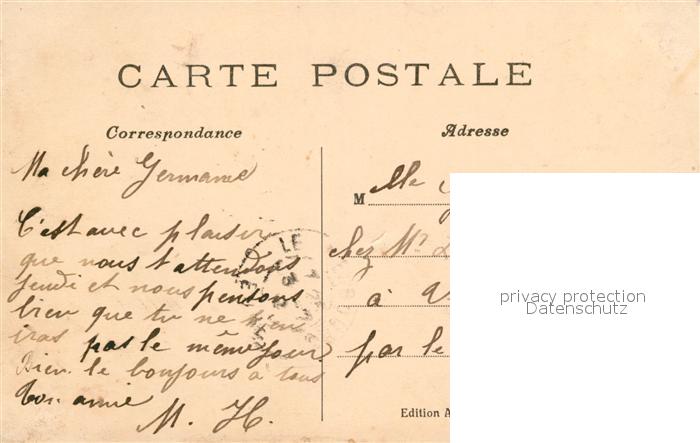 CARTE POSTALE
Correspondance
Adresse
Ma chère Germaine
C'est avec plaisir
que nous t'attendons
jeudi et nous pensons
bien que tu ne t'en
iras pas le même jour
Bien le bonjours a tous
ton amie
M. H.
M elle
chez Mr
à
par le
Edition A
privacy protection
Datenschutz